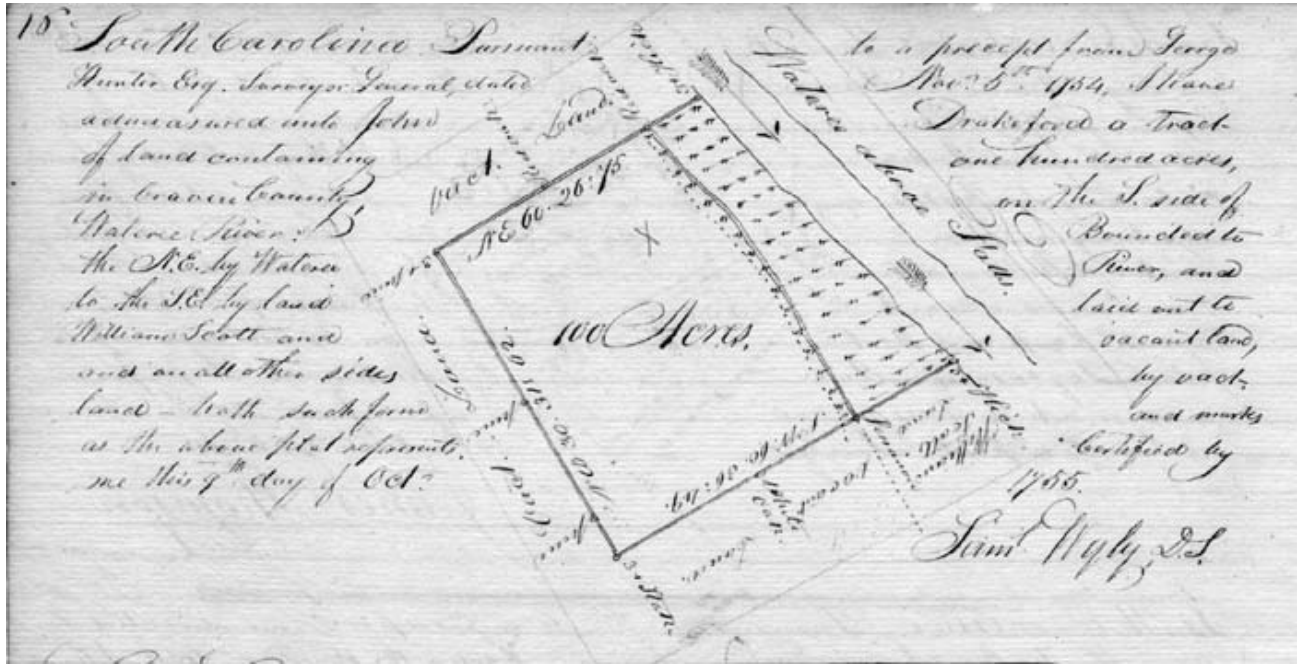 18
South Carolina Pursuant to a precept from George
Hunter Esq. Surveyor General, dated Nov.r 5th 1754, I have
admeasured unto John Drakeford a tract
of land containing one hundred acres,
in Craven County on the S. side of
Wateree River: Bounded to
the N.E. by Wateree River, and
to the S.E. by land laid out to
William Scott and vacant land,
and on all other sides by vact
land - hath such form and marks
as the above plat represents. Certified by
me this 9th day of Oct.r 1755.
Saml Wyly, D.S.
Wateree above Flatts.
Vact. Land
N.E 60. 26:75
100 Acres.
William
Scott
Land
vacant
Lands
White
oak
pine
pine
pine